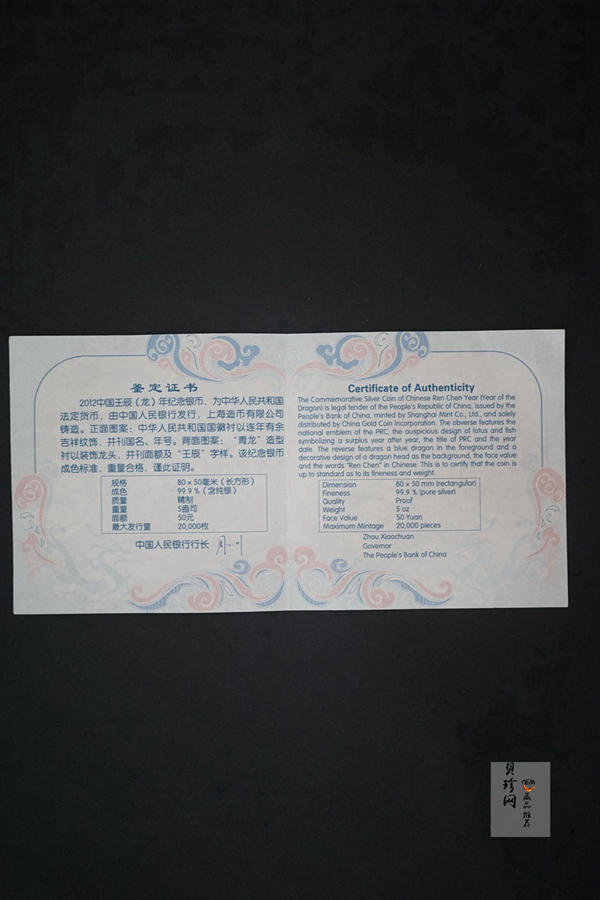 鉴定证书
2012中国壬辰（龙）年纪念银币，为中华人民共和国
法定货币，由中国人民银行发行，上海造币有限公司
铸造。正面图案：中华人民共和国国徽衬以连年有余
吉祥纹饰，并刊国名、年号。背面图案：“青龙”造型
衬以装饰龙头，并刊面额及“壬辰”字样。该纪念银币
成色标准，重量合格，谨此证明。
规格 80×50毫米（长方形）
成色 99.9%（含纯银）
质量 精制
重量 5盎司
面额 50元
最大发行量 20,000枚
中国人民银行行长
Certificate of Authenticity
The Commemorative Silver Coin of Chinese Ren Chen Year (Year of the
Dragon) is legal tender of the People's Republic of China, issued by the
People's Bank of China, minted by Shanghai Mint Co., Ltd., and solely
distributed by China Gold Coin Incorporation. The obverse features the
national emblem of the PRC, the auspicious design of lotus and fish
symbolizing a surplus year after year, the title of PRC and the year
date. The reverse features a blue dragon in the foreground and a
decorative design of a dragon head as the background, the face value
and the words "Ren Chen" in Chinese. This is to certify that the coin is
up to standard as to its fineness and weight.
Dimension 80 × 50 mm (rectangular)
Fineness 99.9 % (pure silver)
Quality Proof
Weight 5 oz
Face Value 50 Yuan
Maximum Mintage 20,000 pieces
Zhou Xiaochuan
Governor
The People's Bank of China
贝珍网